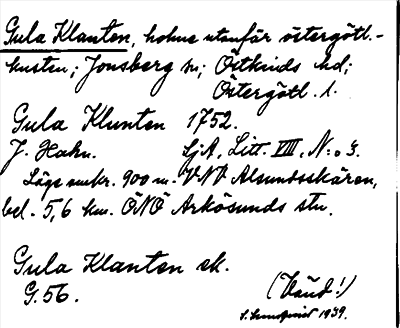 Gula Klanten, holme utanför östergötl.-
kusten; Jonsberg sn; Östkinds hd;
Östergötl. l.
Gula Klunten 1752.
J. Hahn. SjA, Litt. VIII, N:o 3.
Läge omkr. 900 m. VNV Alsundsskären,
bel. 5,6 km. ÖNÖ Arkösunds stn.
Gula Klanten ek.
G. 56.
(Känd!)
1939.